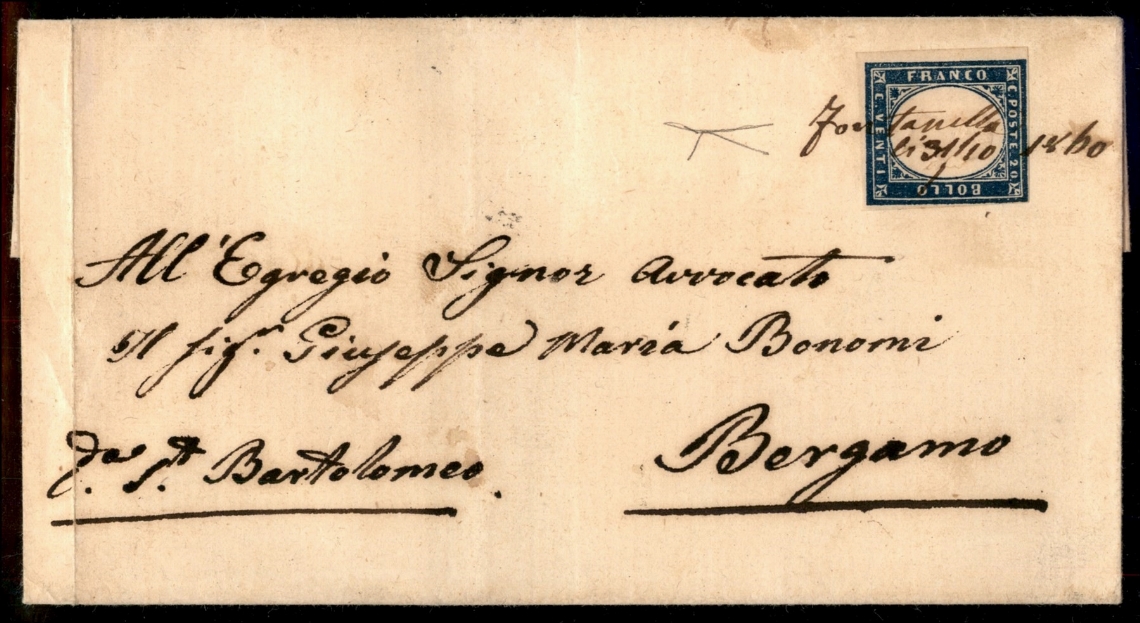 FRANCO
C. VENTI
C. POSTE 20
BOLLO
Fontanella
li 31/10 1860
All'Egregio Signor Avvocato
Il sigr. Giuseppe Maria Bonomi
St. Bartolomeo.
Bergamo